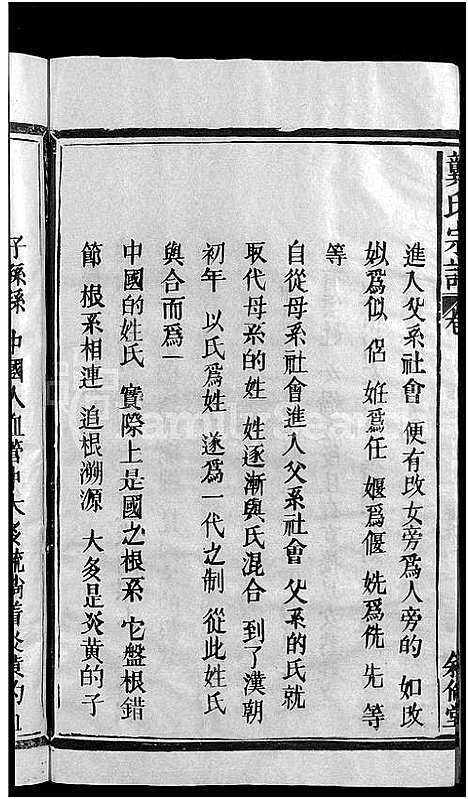 龔氏宗譜 卷
敘倫堂
進入父系社會 便有改女旁為人旁的 如改
姒為似 侶 姙為任 嫗為傴 姺為侁 先 等
等
自從母系社會進入父系社會 父系的氏就
取代母系的姓 姓逐漸與氏混合 到了漢朝
初年 以氏為姓 遂為一代之制 從此姓氏
與合而為一
中國的姓氏 實際上是國之根系 它盤根錯
節 根系相連 追根溯源 大多是炎黃的子
子孫孫 中國人血管中大多流淌着炎黃的血
FamilySearch